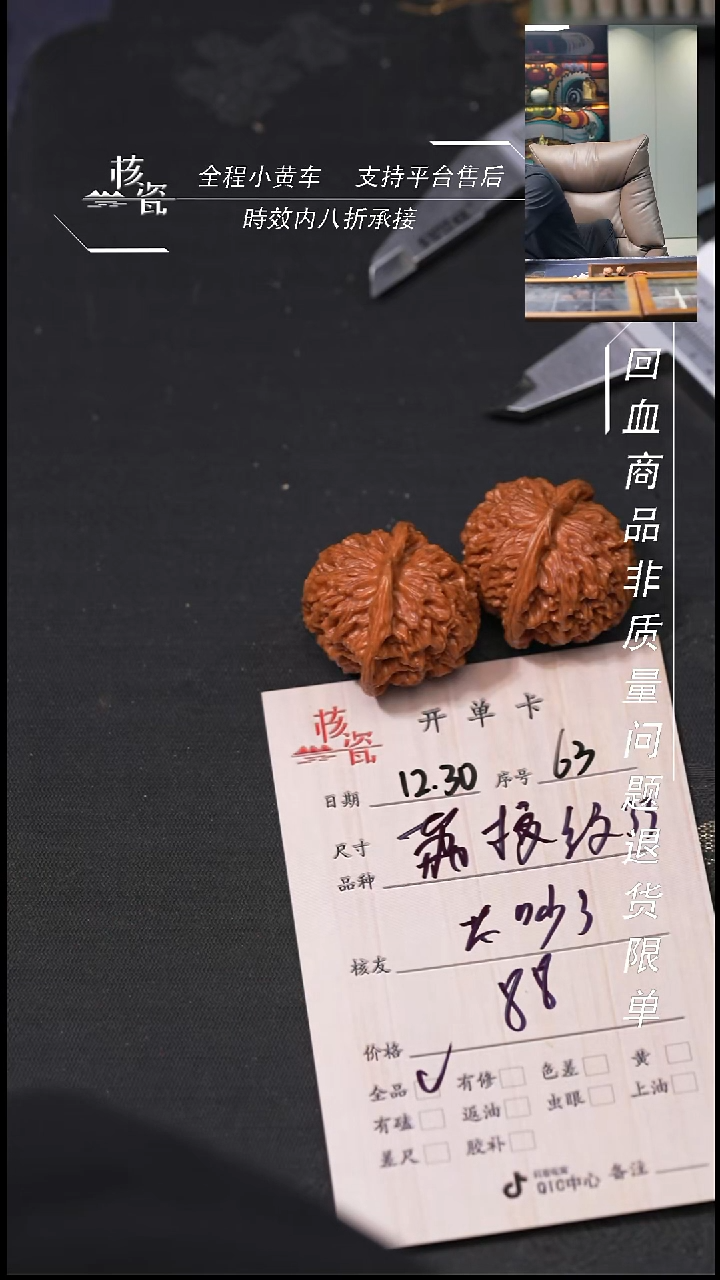 核瓷
全程小黄车 支持平台售后
時效内八折承接
回血商品非质量问题退货限单
核瓷
开单卡
日期 12.30 序号 63
尺寸
品种
核友
88
价格
全品 ✓ 有修 色差 黄
有磕 返油 虫眼 上油
差尺 胶补
QIC中心 备注